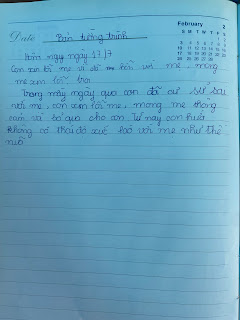 Date Bản tường trình
February 2
S M T W T F S
Hôm nay ngày 17/7
Con xin lỗi mẹ vì đã hỗn với mẹ, mong
mẹ xem lỗi
Trong mấy ngày qua con đã cư sử sai
với mẹ, con xin lỗi mẹ, mong mẹ thông
cảm và bỏ qua cho con, từ nay con hứa
không có thái độ xấc láo với mẹ như thế
nữa